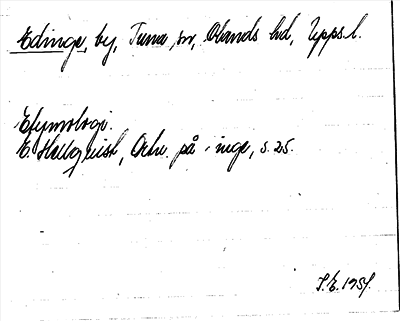 Edinge, by, Tuna sn, Olands hd, Upps. l.
Etymologi.
E. Hellquist, Ortn. på -inge, s. 25.
S.E. 1951.